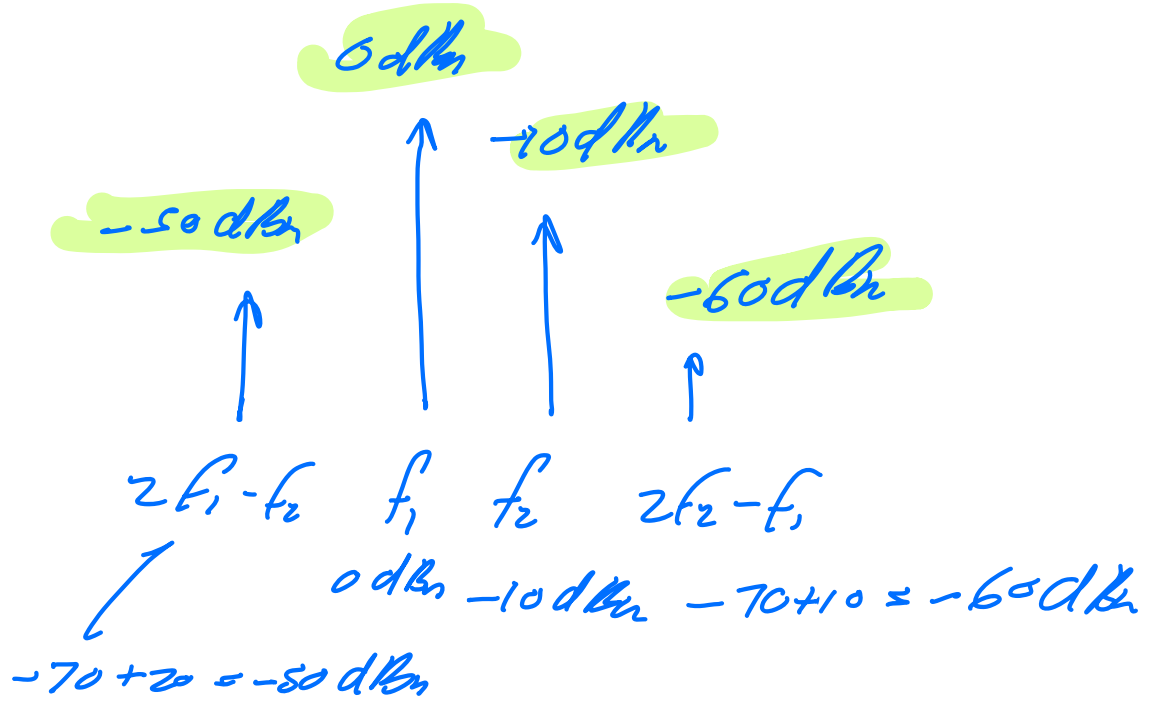 0 dBm
-10 dBm
-50 dBm
-60 dBm
2f₁-f₂ f₁ f₂ 2f₂-f₁
0 dBm -10 dBm -70+10 = -60 dBm
-70+20 = -50 dBm